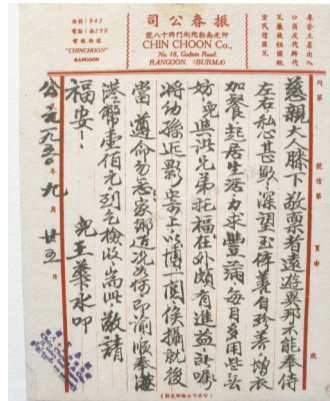 振春公司
CHIN CHOON Co.,
No. 18, Godwin Road.
RANGOON. (BURMA)
信箱:943
電話:南390
電報掛號
"CHINCHOON"
RANGOON
慈親大人膝下敬稟者遠遊異邦不能奉侍
左右私心甚歉深望玉体善自珍善增衣
加餐起居生活力求豐滿每月多用些無
妨也進洪兄弟托福在外頗有進益
將幼孫近影寄上以博一閱候攝就後
當遵命勿忘家鄉近況如何即諭順奉
港幣壹佰元到乞檢收耑此敬請
福安!
兒王華水叩
公元一九五〇年九月廿五日